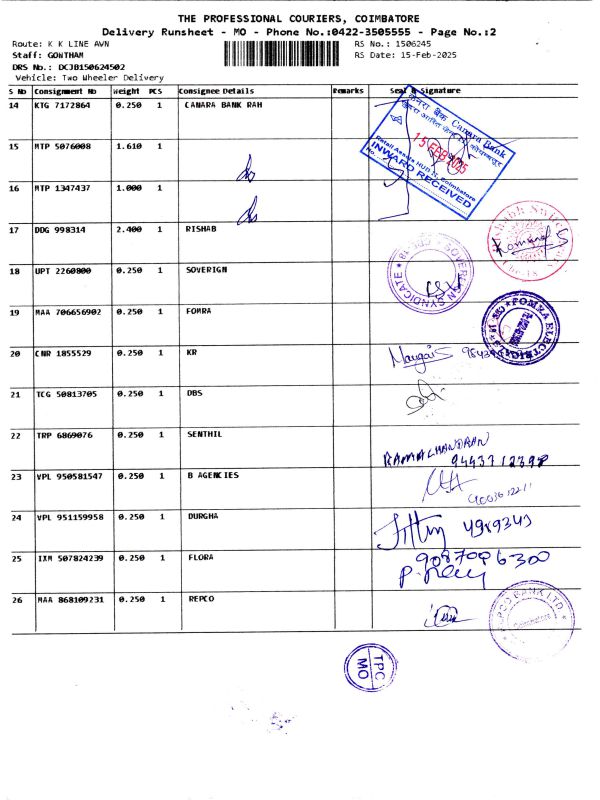 THE PROFESSIONAL COURIERS, COIMBATORE
Delivery Runsheet - MO - Phone No.:0422-3505555 - Page No.:2
Route: K K LINE AVN RS No.: 1506245
Staff: GONTHAM RS Date: 15-Feb-2025
DRS No.: DCJB150624502
Vehicle: Two Wheeler Delivery
S No Consignment No Weight PCS Consignee Details Remarks Seal & Signature
14 KTG 7172864 0.250 1 CANARA BANK RAH
Canara Bank
15 FEB 2025
Retail Assets HUB N, Coimbatore
INWARD RECEIVED
No.
15 MTP 5076008 1.610 1
16 MTP 1347437 1.000 1
17 DDG 998314 2.400 1 RISHAB
18 UPT 2260800 0.250 1 SOVERIGN
SOVERIGN SYNDICATE
19 MAA 706656902 0.250 1 FOMRA
FOMRA ELECTRICALS
20 CNR 1855529 0.250 1 KR
21 TCG 50813705 0.250 1 DBS
22 TRP 6869076 0.250 1 SENTHIL
RAMACHANDRAN
23 VPL 950581547 0.250 1 B AGENCIES
24 VPL 951159958 0.250 1 DURGHA
4989343
25 IXM 507824239 0.250 1 FLORA
9087006300
26 MAA 868109231 0.250 1 REPCO
REPCO BANK LTD.
Coimbatore
TPC
MO